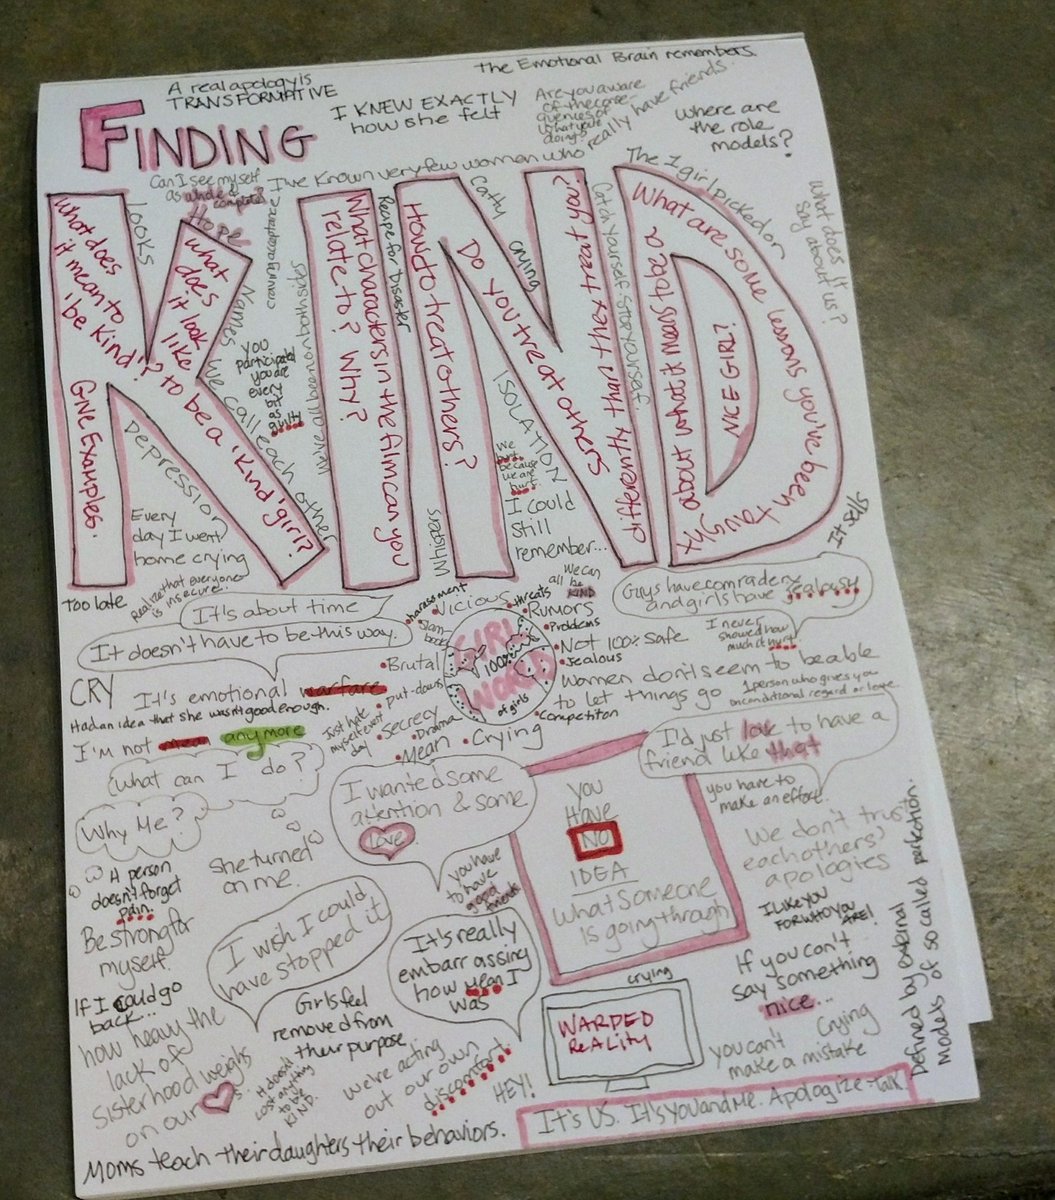 A real apology is
TRANSFORMATIVE
I KNEW EXACTLY
how she felt
The Emotional Brain remembers.
Are you aware
of the conse-
quences of
what you're
doing?
Where are
the role
models?
FINDING
KIND
Can I see myself
as whole & complete?
Hope
I've known very few women who really have friends.
The 1 girl picked on
What does it
say about us?
Looks
What does
it mean to
'be kind'?
Give Examples.
What
does
it look
like
to be a 'kind' girl?
craving acceptance
Names we call each other
YOU
participated
you are
every
bit
as
guilty
We've all been on both sides
What characters in the film can you
relate to? Why?
Recipe for disaster
How do treat others?
Catty
crying
Do you treat others
differently than they treat you?
Catch yourself. Stop yourself.
What are some lessons you've been taught
about what it means to be a
NICE GIRL?
It sells
Depression
Every
day I went
home crying
Whispers
ISOLATION
We
hurt
because
we are
hurt.
I could
still
remember...
Too late
Realize that everyone
is insecure.
It's about time
It doesn't have to be this way.
GIRL
100%
WORLD
of girls
harassment
Vicious
threats
Rumors
Problems
Slam
books
Not 100% safe
Brutal
Jealous
put-downs
Secrecy
Drama
Competiton
Mean
Crying
We can
all be
KIND
Guys have comradery
and girls have jealousy
I never
showed how
much it hurt.
Women don't seem to be able
to let things go
1 person who gives you
unconditional regard or love.
CRY
It's emotional warfare
Had an idea that she wasn't good enough.
I'm not mean anymore
Just hate
myself every
day
What can I do?
Why Me?
I wanted some
attention & some
love
I'd just love to have a
friend like that
you have to
make an effort.
YOU
Have
NO
IDEA
what someone
is going through
We don't trust
each others'
apologies
A person
doesn't forget
pain.
She turned
on me.
you have
to have
good
friends
I LIKE YOU
FOR WHO YOU
ARE!
Be strong for
myself!
I wish I could
have stopped it
It's really
embarrassing
how mean I
was
If you can't
say something
nice...
Defined by external
models of so called perfection.
If I could go
back...
Girls feel
removed from
their purpose
crying
WARPED
REALITY
Crying
you can't
make a mistake
how heavy the
lack of
sisterhood weighs
on our
It doesn't
cost anything
to be
KIND.
we're acting
out our own
discomfort.
HEY!
It's US. It's you and me. Apologize-Talk
Moms teach their daughters their behaviors.